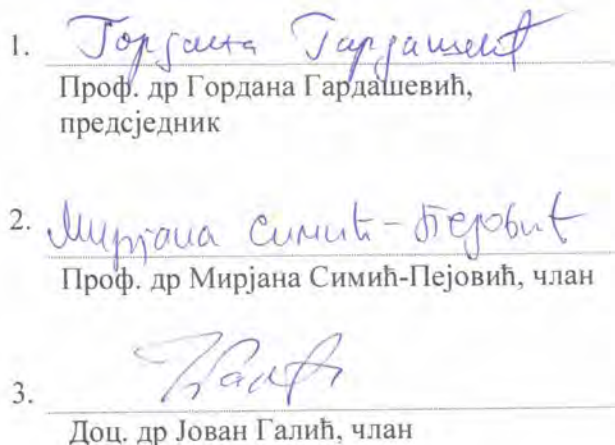 1. Гордана Гардашевић
Проф. др Гордана Гардашевић,
предсједник
2. Мирјана Симић-Пејовић
Проф. др Мирјана Симић-Пејовић, члан
3.
Доц. др Јован Галић, члан